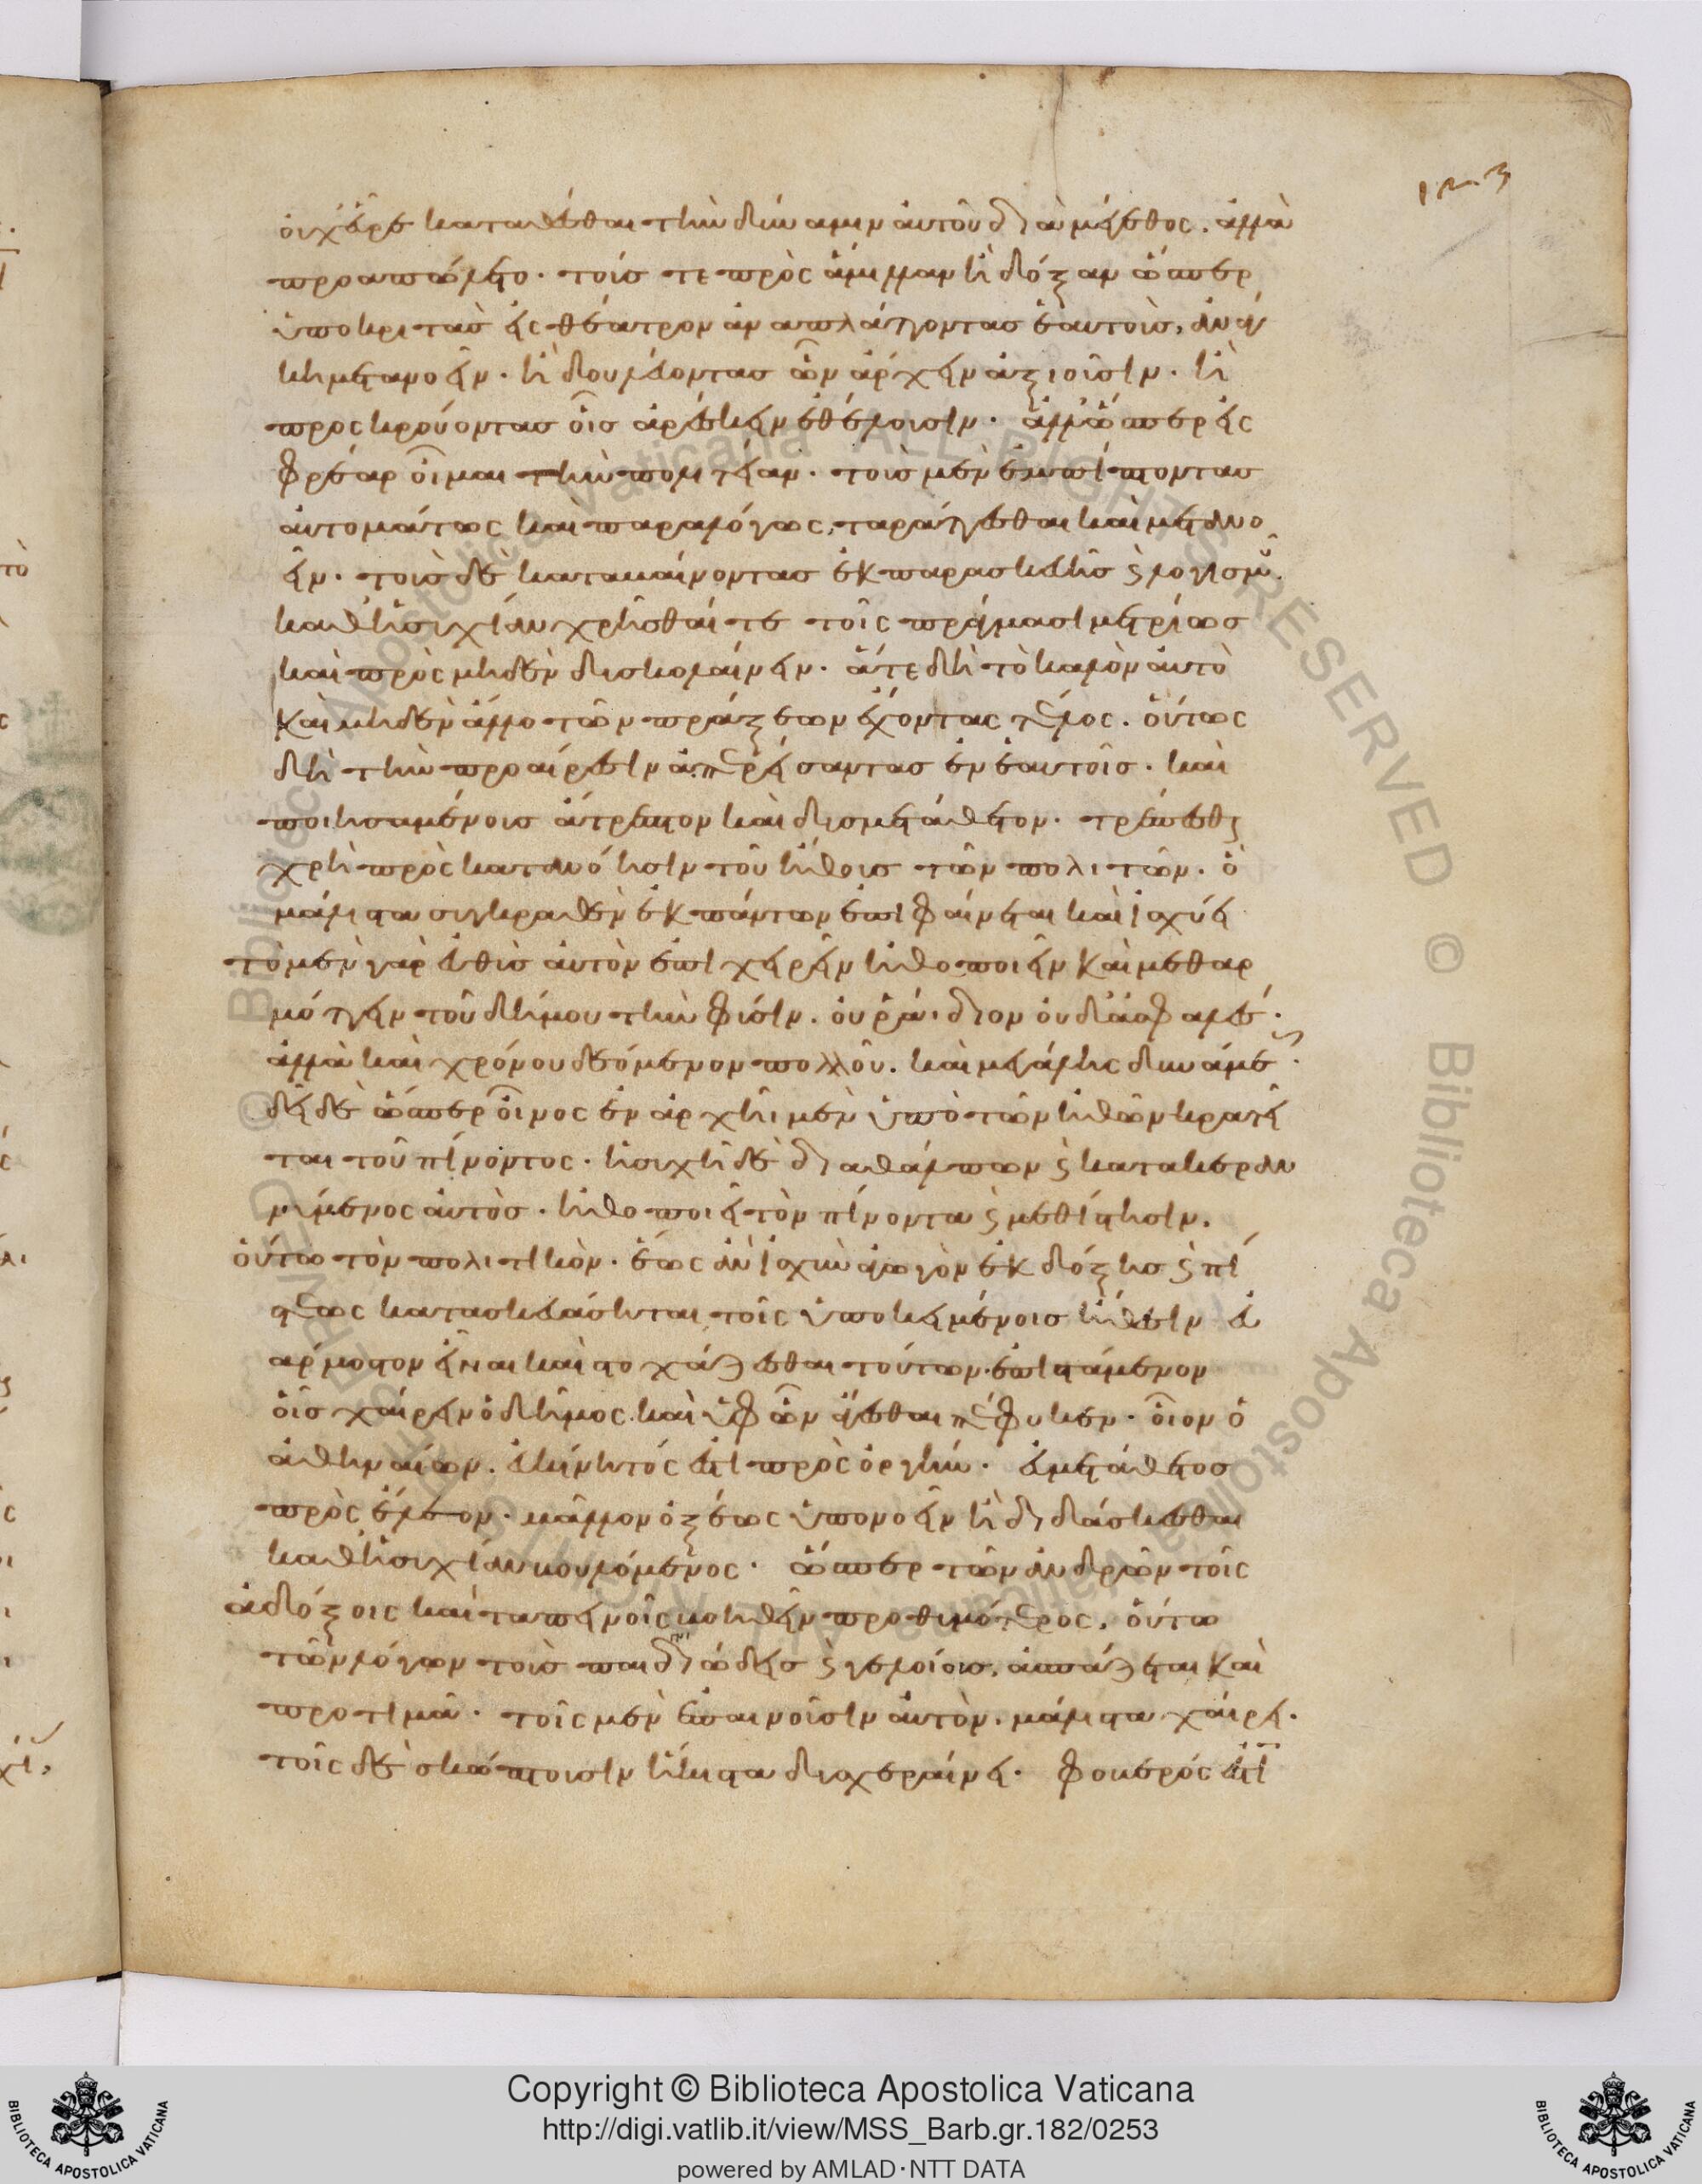 οὐχ εὗρε καταθέσθαι τὴν δύναμιν αὐτοῦ διὰ μέγεθος. ἀλλὰ
προαπώλετο. τούς τε πρὸς ἅμιλλαν ἢ δόξαν ὥσπερ
ὑποκριτὰς εἰς θέατρον ἀναπλάττοντας ἑαυτοὺς, ἀνάγ
κη μετανοεῖν. ἢ δουλεύοντας ὧν ἄρχειν ἀξιοῦσιν. ἢ
προσκρούοντας οἷς ἀρέσκειν ἐθέλουσιν. ἀλλ' ὥσπερ εἰς
φρέαρ οἶμαι τὴν πολιτείαν. τοὺς μὲν ἐμπίπτοντας
αὐτομάτως καὶ παραλόγως, ταράττεσθαι καὶ μετανο
εῖν. τοὺς δὲ καταβαίνοντας ἐκ παρασκευῆς ϛ λογισμοῦ.
καθ' ἡσυχίαν χρῆσθαί τε τοῖς πράγμασι μετρίως
καὶ πρὸς μηδὲν δυσκολαίνειν. ἅτε δὴ τὸ καλὸν αὐτὸ
καὶ μηδὲν ἄλλο τῶν πράξεων ἔχοντας τέλος. οὕτως
δὴ τὴν προαίρεσιν ἀπερείσαντας ἐν ἑαυτοῖς. καὶ
ποιησαμένους ἄτρεπτον καὶ δυσμετάθετον. τρέπεσθαι
χρὴ πρὸς κατανόησιν τοῦ ἤθους τῶν πολιτῶν. ὃ
μάλιστα συγκραθὲν ἐκ πάντων ἐπιφαίνεται καὶ ἰσχύει
τὸ μὲν γὰρ εὐθὺς αὐτὸν ἐπιχειρεῖν ἠθοποιεῖν καὶ μεθαρ
μόττειν τοῦ δήμου τὴν φύσιν. οὐ ῥάιδιον οὐδὲ ἀσφαλές.
ἀλλὰ καὶ χρόνου δεόμενον πολλοῦ. καὶ μεγάλης δυνάμεως.
δεῖ δὲ ὥσπερ οἶνος ἐν ἀρχῆι μὲν ὑπὸ τῶν ἠθῶν κρατεῖ
ται τοῦ πίνοντος. ἡσυχῆ δὲ διαθάλπων ϛ κατακεραν
νύμενος αὐτὸς. ἠθοποιεῖ τὸν πίνοντα ϛ μεθίστησιν.
οὕτω τὸν πολιτικὸν. ἕως ἂν ἰσχὺν ἀγωγὸν ἐκ δόξης ϛ πί
στεως κατασκευάσηται, τοῖς ὑποκειμένοις ἤθεσιν εὐ
άρμοστον εἶναι καὶ στοχάζεσθαι τούτων. ἐπιστάμενον
οἷς χαίρειν ὁ δῆμος. καὶ ὑφ' ὧν ἄγεσθαι πέφυκεν. οἷον ὁ
ἀθηναίων. εὐκίνητός ἐστι πρὸς ὀργήν. εὐμετάθετος
πρὸς ἔλεον. μᾶλλον ὀξέως ὑπονοεῖν ἢ διδάσκεσθαι
καθ' ἡσυχίαν βουλόμενος. ὥσπερ τῶν ἀνδρῶν τοῖς
ἀδόξοις καὶ ταπεινοῖς βοηθεῖν προθυμότερος, οὕτω
τῶν λόγων τοὺς παιδιώδεις ϛ γελοίους, ἀσπάζεται καὶ
προτιμᾶ. τοῖς μὲν ἐπαινοῦσιν αὐτὸν. μάλιστα χαίρει.
τοῖς δὲ σκώπτουσιν ἥκιστα δυσχεραίνει. φοβερός ἐστι